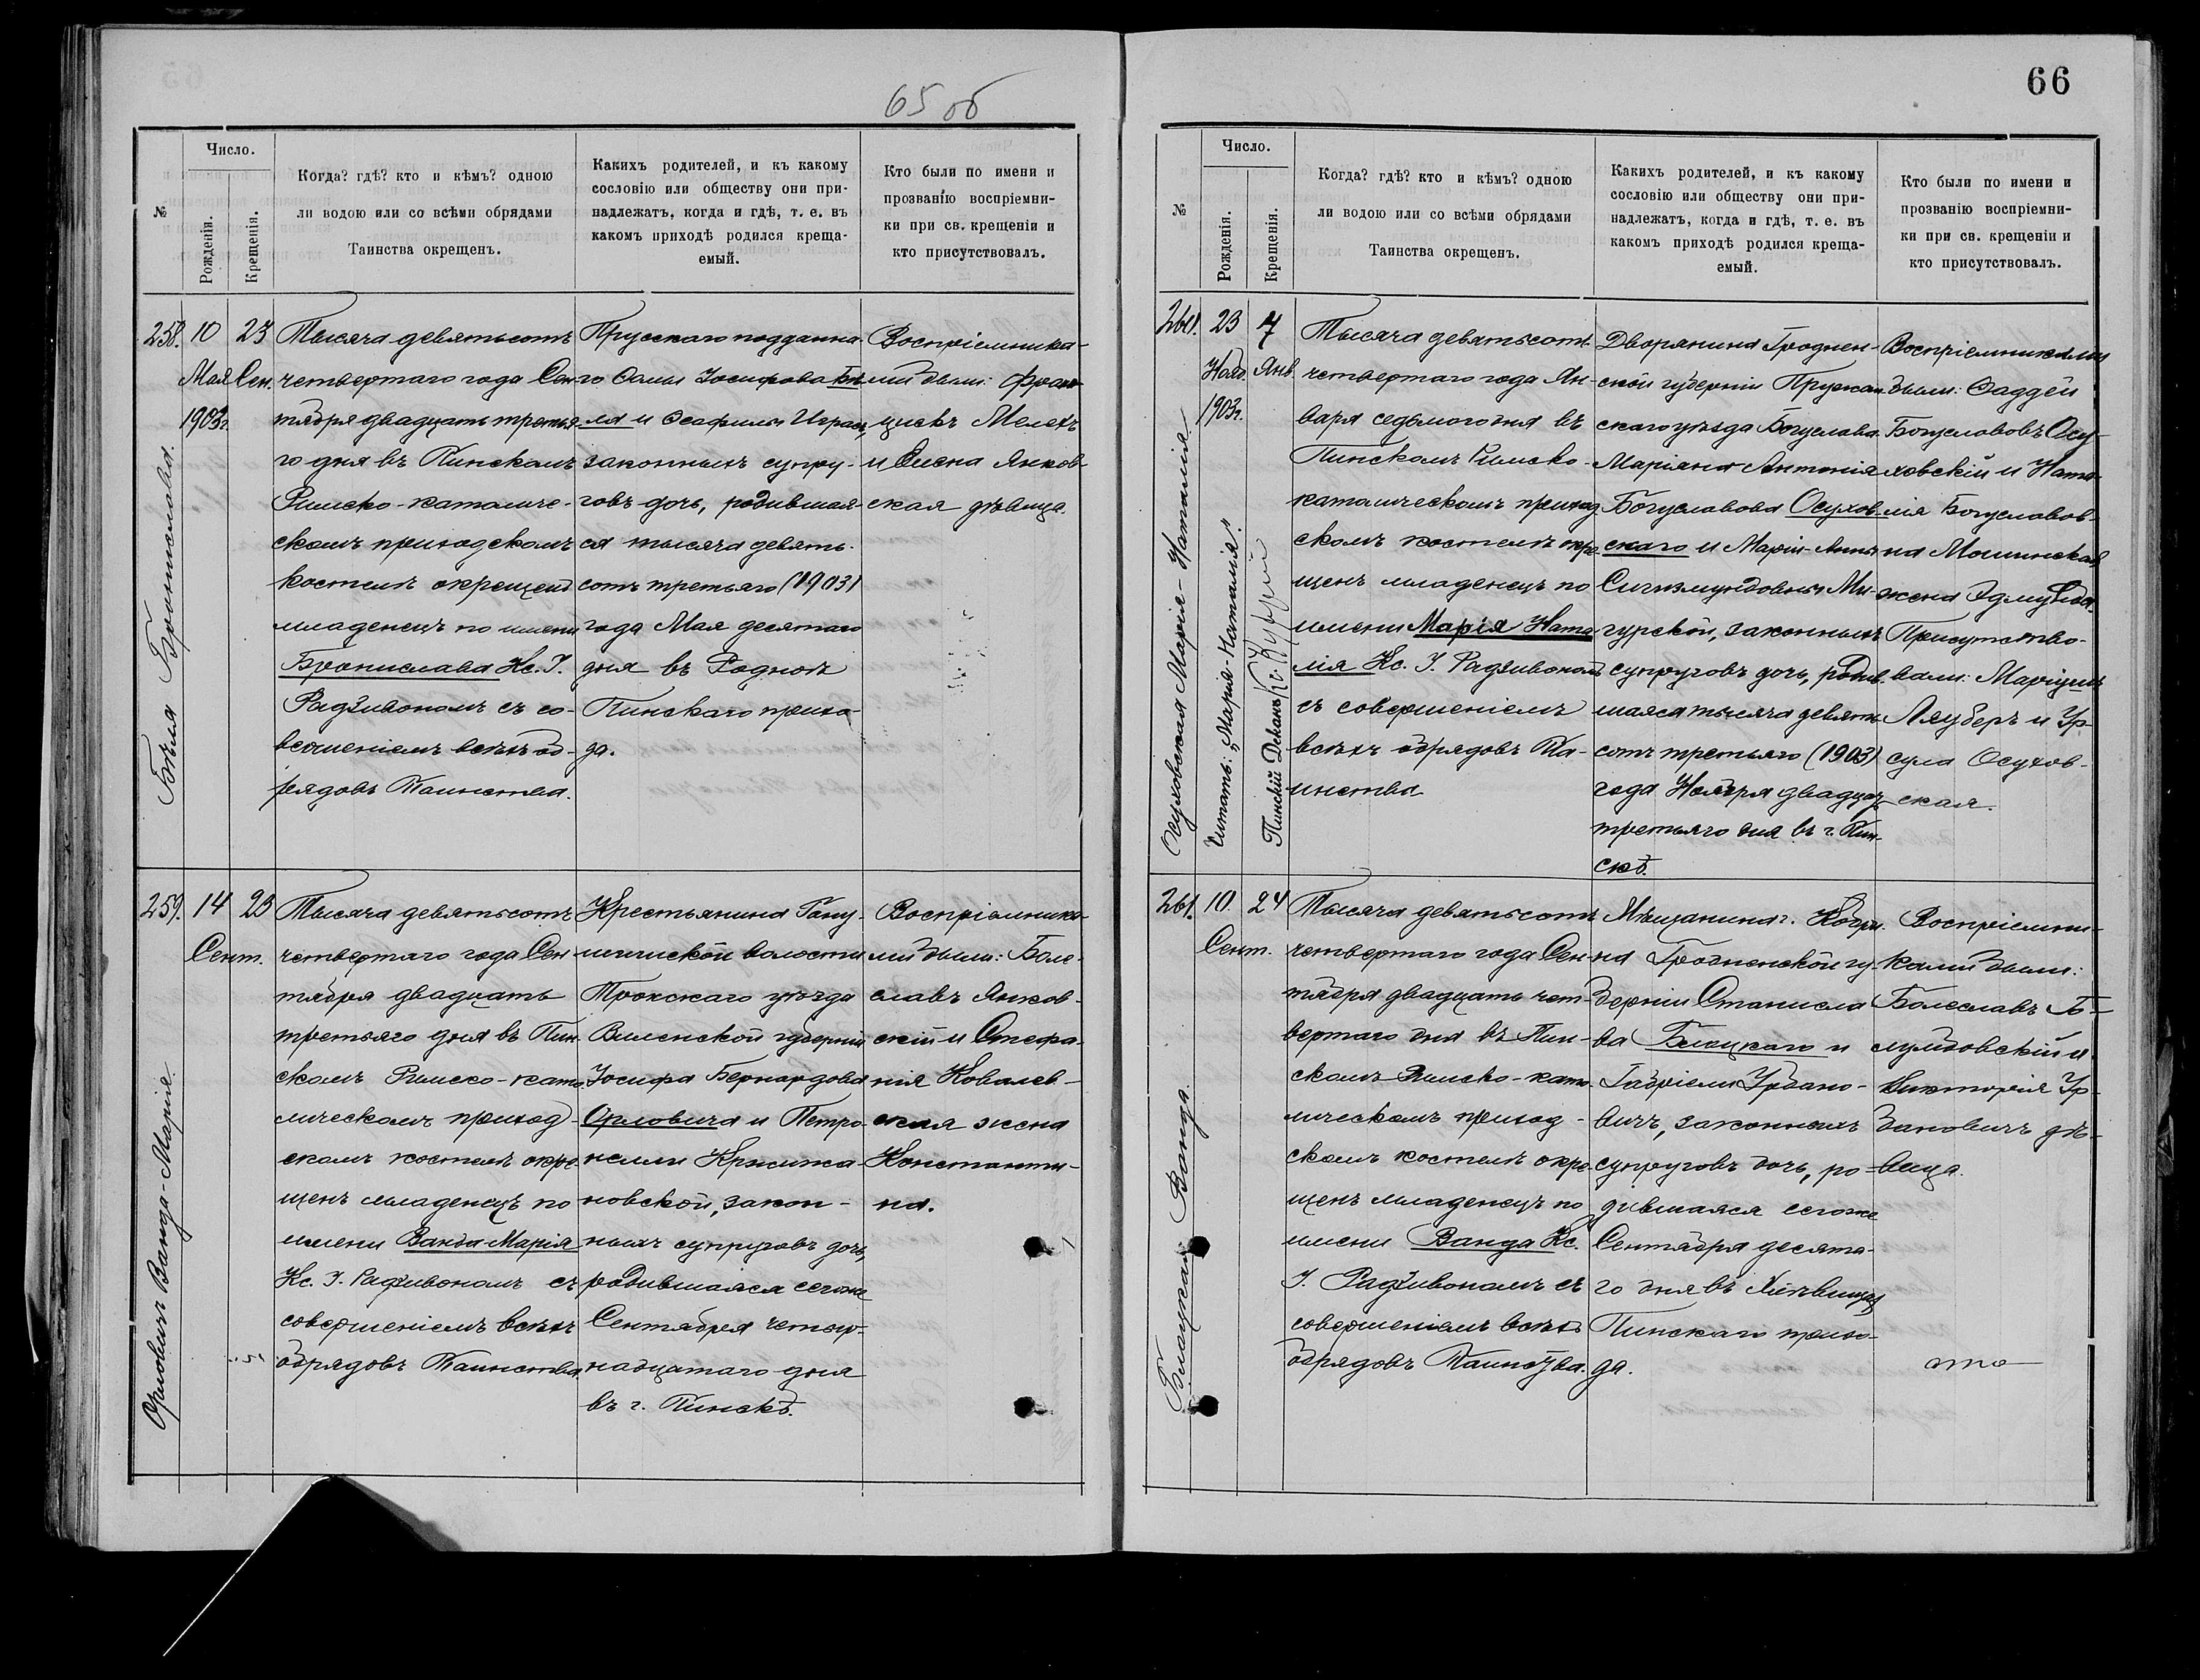 65 об
№
Число.
Рожденія.
Крещенія.
Когда? гдѣ? кто и кѣмъ? одною
ли водою или со всѣми обрядами
Таинства окрещенъ.
Какихъ родителей, и къ какому
сословію или обществу они при-
надлежатъ, когда и гдѣ, т. е. въ
какомъ приходѣ родился креща-
емый.
Кто были по имени и
прозванію воспріемни-
ки при св. крещеніи и
кто присутствовалъ.
258.
Бѣля Бронислава.
10
Мая
1903 г.
23
Сен.
Тысяча девятьсотъ
четвертаго года Сен-
тября двадцать третья-
го дня въ Пинскомъ
Римско-католиче-
скомъ приходскомъ
костелѣ окрещенъ
младенецъ по имени
Бронислава Кс. І.
Радзивономъ съ со-
вершеніемъ всѣхъ об-
рядовъ Таинства.
Прусскаго подданна-
го Іосифова Бѣ-
ля и Ѳеофилы
законныхъ супру-
говъ дочь, родившая-
ся тысяча девять-
сотъ третьяго (1903)
года Мая десятаго
дня въ
Пинскаго прихо-
да.
Воспріемника-
ми были: Фран-
цискъ Мелехъ
и Елена Янков-
ская дѣвица.
259.
Орловичъ Ванда-Марія.
14
Сент.
23
Тысяча девятьсотъ
четвертаго года Сен-
тября двадцать
третьяго дня въ Пин-
скомъ Римско-като-
лическомъ приход-
скомъ костелѣ окре-
щенъ младенецъ по
имени Ванда-Марія
Кс. І. Радзивономъ съ
совершеніемъ всѣхъ
обрядовъ Таинства.
Крестьянина Гану-
шишской волости
Трокскаго уѣзда
Виленской губерніи
Іосифа Бернардова
Орловича и Петро-
нели Кржижа-
новской, закон-
ныхъ супруговъ дочь,
родившаяся сегоже
Сентября четыр-
надцатаго дня
въ г. Пинскѣ.
Воспріемника-
ми были: Боле-
славъ Янков-
скій и Стефа-
нія Ковалев-
ская жена
Константи-
на.
66
№
Число.
Рожденія.
Крещенія.
Когда? гдѣ? кто и кѣмъ? одною
ли водою или со всѣми обрядами
Таинства окрещенъ.
Какихъ родителей, и къ какому
сословію или обществу они при-
надлежатъ, когда и гдѣ, т. е. въ
какомъ приходѣ родился креща-
емый.
Кто были по имени и
прозванію воспріемни-
ки при св. крещеніи и
кто присутствовалъ.
260.
Осуховская Марія-Наталія
Читать: „Марія-Наталія".
Пинскій Деканъ Кс.
23
Нояб.
1903 г.
7
Янв.
Тысяча девятьсотъ
четвертаго года Ян-
варя седьмого дня въ
Пинскомъ Римско-
католическомъ приход-
скомъ костелѣ окре-
щенъ младенецъ по
имени Марія Ната-
лія Кс. І. Радзивономъ
съ совершеніемъ
всѣхъ обрядовъ Та-
инства
Дворянина Гроднен-
ской губерніи Пружан-
скаго уѣзда Богуслава-
Маріяна Антонія
Богуславова Осухов-
скаго и Маріи-Анны
Сигизмундовны Ми-
гурской, законныхъ
супруговъ дочь, родив-
шаяся тысяча девять-
сотъ третьяго (1903)
года Ноября двадцать
третьяго дня въ г. Пин-
скѣ.
Воспріемниками
были: Ѳаддей
Богуславовъ Осу-
ховскій и Ната-
лія Богуславов-
на Мошинская
жена Эдмунда.
Присутство-
вали: Маріушъ
Ляуберъ и Ур-
сула Осухов-
ская.
261.
Блацкая Ванда.
10
Сент.
24
Тысяча девятьсотъ
четвертаго года Сен-
тября двадцать чет-
вертаго дня въ Пин-
скомъ Римско-като-
лическомъ приход-
скомъ костелѣ окре-
щенъ младенецъ по
имени Ванда Кс.
І. Радзивономъ съ
совершеніемъ всѣхъ
обрядовъ Таинства.
Мѣщанина г. Кобри-
на Гродненской гу-
берніи Станисла-
ва Блацкаго и
Габріели Урбано-
вичъ, законныхъ
супруговъ дочь, ро-
дившаяся сегоже
Сентября десята-
го дня въ
Пинскаго прихо-
да.
Воспріемни-
ками были:
Болеславъ
и
Викторія Ур-
бановичъ дѣ-
вица.